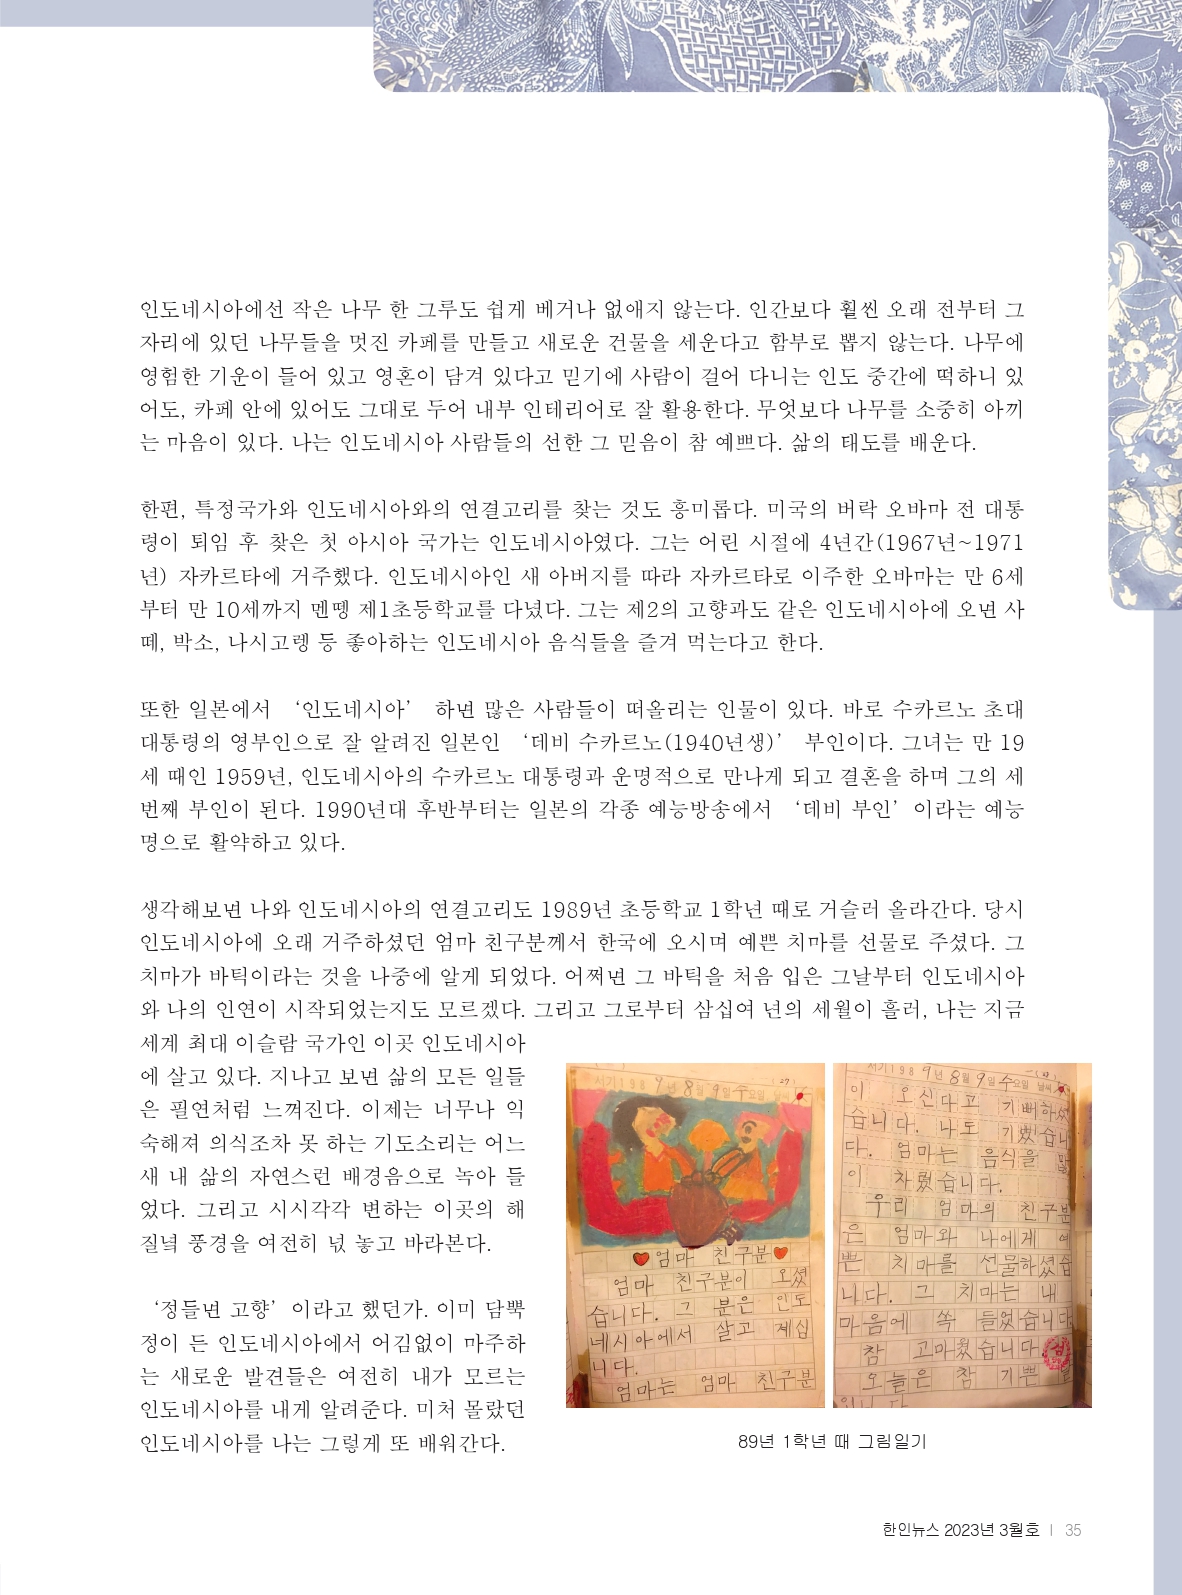 인도네시아에선 작은 나무 한 그루도 쉽게 베거나 없애지 않는다. 인간보다 훨씬 오래 전부터 그
자리에 있던 나무들을 멋진 카페를 만들고 새로운 건물을 세운다고 함부로 뽑지 않는다. 나무에
영험한 기운이 들어 있고 영혼이 담겨 있다고 믿기에 사람이 걸어 다니는 인도 중간에 떡하니 있
어도, 카페 안에 있어도 그대로 두어 내부 인테리어로 잘 활용한다. 무엇보다 나무를 소중히 아끼
는 마음이 있다. 나는 인도네시아 사람들의 선한 그 믿음이 참 예쁘다. 삶의 태도를 배운다.
한편, 특정국가와 인도네시아와의 연결고리를 찾는 것도 흥미롭다. 미국의 버락 오바마 전 대통
령이 퇴임 후 찾은 첫 아시아 국가는 인도네시아였다. 그는 어린 시절에 4년간(1967년~1971
년) 자카르타에 거주했다. 인도네시아인 새 아버지를 따라 자카르타로 이주한 오바마는 만 6세
부터 만 10세까지 멘뗑 제1초등학교를 다녔다. 그는 제2의 고향과도 같은 인도네시아에 오면 사
떼, 박소, 나시고렝 등 좋아하는 인도네시아 음식들을 즐겨 먹는다고 한다.
또한 일본에서 ‘인도네시아’ 하면 많은 사람들이 떠올리는 인물이 있다. 바로 수카르노 초대
대통령의 영부인으로 잘 알려진 일본인 ‘데비 수카르노(1940년생)’ 부인이다. 그녀는 만 19
세 때인 1959년, 인도네시아의 수카르노 대통령과 운명적으로 만나게 되고 결혼을 하며 그의 세
번째 부인이 된다. 1990년대 후반부터는 일본의 각종 예능방송에서 ‘데비 부인’이라는 예능
명으로 활약하고 있다.
생각해보면 나와 인도네시아의 연결고리도 1989년 초등학교 1학년 때로 거슬러 올라간다. 당시
인도네시아에 오래 거주하셨던 엄마 친구분께서 한국에 오시며 예쁜 치마를 선물로 주셨다. 그
치마가 바틱이라는 것을 나중에 알게 되었다. 어쩌면 그 바틱을 처음 입은 그날부터 인도네시아
와 나의 인연이 시작되었는지도 모르겠다. 그리고 그로부터 삼십여 년의 세월이 흘러, 나는 지금
세계 최대 이슬람 국가인 이곳 인도네시아
에 살고 있다. 지나고 보면 삶의 모든 일들
은 필연처럼 느껴진다. 이제는 너무나 익
숙해져 의식조차 못 하는 기도소리는 어느
새 내 삶의 자연스런 배경음으로 녹아 들
었다. 그리고 시시각각 변하는 이곳의 해
질녘 풍경을 여전히 넋 놓고 바라본다.
‘정들면 고향’이라고 했던가. 이미 담뿍
정이 든 인도네시아에서 어김없이 마주하
는 새로운 발견들은 여전히 내가 모르는
인도네시아를 내게 알려준다. 미처 몰랐던
인도네시아를 나는 그렇게 또 배워간다.
서기 1989년 8월 9일 수요일 날씨
엄마 친구분
엄마 친구분이 오셨
습니다. 그 분은 인도
네시아에서 살고 계십
니다.
엄마는 엄마 친구분
서기 1989년 8월 9일 수요일 날씨
이 오신다고 기뻐하셨
습니다. 나도 기뻤습니
다. 엄마는 음식을 많
이 차렸습니다.
우리 엄마의 친구분
은 엄마와 나에게 예
쁜 치마를 선물하셨습
니다. 그 치마는 내
마음에 쏙 들었습니다
참 고마웠습니다
오늘은 참 기쁜 날
입니다
89년 1학년 때 그림일기
한인뉴스 2023년 3월호 | 35